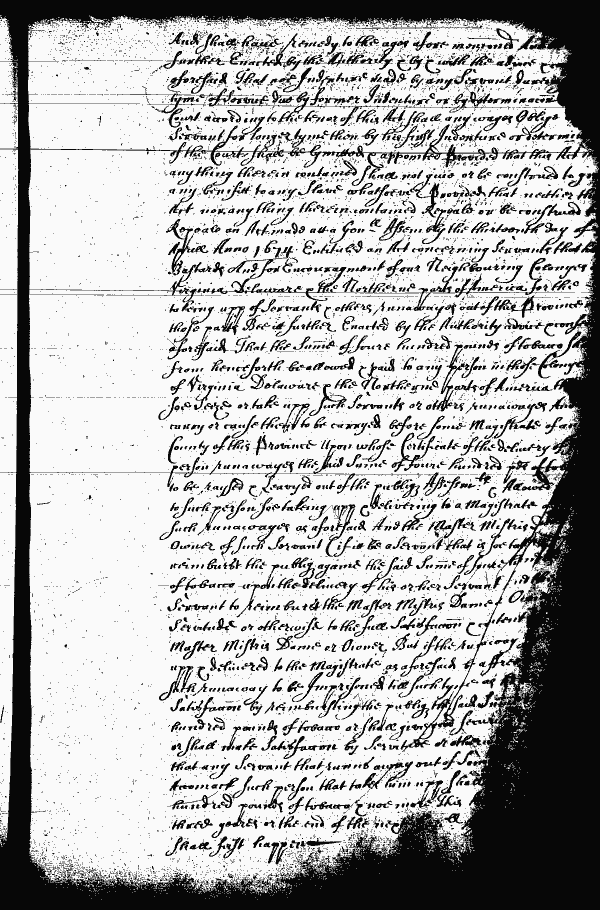 And shall have remedy to the ages afore mentioned
further Enacted by the Authority & by & with the advice
aforesaid That noe Indenture made by any Servant dureing
tyme of Service due by former Indenture or by determinacon
Court according to the tenor of this Act shall any wayes Oblige
Servant for longer tyme then by his first Indenture or determin
of the Court shall be Lymitted & appointed Provided that this Act
any thing therein contained shall not give or be construed to
any benifitt to any Slave whatsoever Provided that neither
Act nor any thing therein contained Repeale or be construed
Repeale an Act made att a Genll Assembly the thirteenth day of
Aprill Anno 1674 Entituled an Act concerning Servants that
Bastards And for Encouragment of our Neighbouring Colonyes
Virginia Delaware & the Northerne parts of America for the
takeing upp of Servants & others runawayes out of this Province
those parts Bee it further Enacted by the Authority advice
aforesaid That the Sume of foure hundred pounds of tobacco
from henceforth be allowed & paid to any person in those Colonyes
of Virginia Delaware & the Northerne parts of America
soe Seize or take upp such Servants or others runawayes And
carry or cause them to be carryed before some Magistrate of
County of this Province Upon whose Certificate of the delivery of
person runawayes the said Sume of Foure hundred
to be raysed & Leavyed out of the publiq Assessmts & Allowed
to such person soe takeing upp & delivering to a Magistrate
such runawayes as aforesaid And the Master Mistris
Owner of such Servant (if it be a Servant that is soe
reimburse the publiq againe the said Sume of foure
of tobacco upon the delivery of his or her Servant
Servant to reimburse the Master Mistris Dame
Servitude or otherwise to the full Satisfacon & content
Master Mistris Dame or Owner But if the runaway
upp & delivered to the Magistrate as aforesaid
such runaway to be Imprisoned till such tyme as
Satisfacon by reimbursting the publiq the said
hundred pounds of tobacco or shall give good
or shall make Satisfacon by Servitude or
that any Servant that runns away out of
Accomack such person that takes him upp shall
hundred pounds of tobacco & noe more This
three yeares or the end of the next
shall first happen